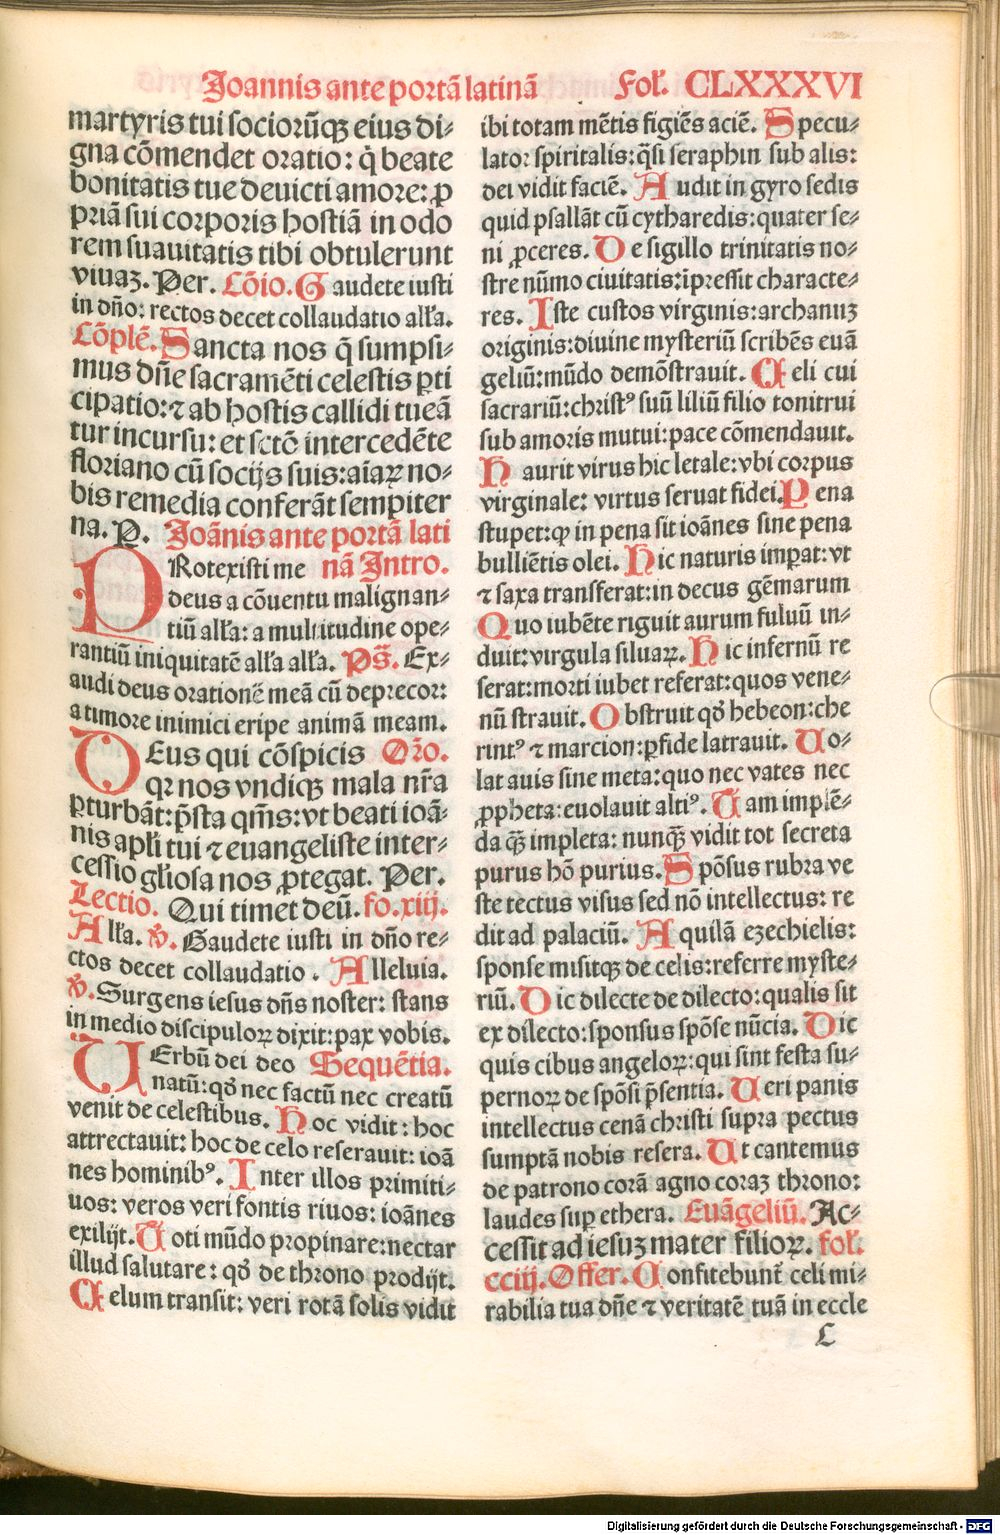 Joannis ante portã latinã Fol. CLXXXVI
martyris tui sociorũqꝫ eius di⸗
gna cõmendet oratio: q̇ beate
bonitatis tue deuicti amore: ꝓ
priã sui corporis hostiã in odo
rem suauitatis tibi obtulerunt
viuaꝫ. Per. Cõio. Gaudete iusti
in dño: rectos decet collaudatio alľa.
Cõplẽ. Sancta nos q̃ sumpsi⸗
mus dñe sacramẽti celestis ꝑti
cipatio: ⁊ ab hostis callidi tueã
tur incursu: et sctõ intercedẽte
floriano cũ socijs suis: aĩaꝝ no⸗
bis remedia conferãt sempiter
na. P. Joãnis ante portã lati
PRotexisti me nã Intro.
deus a cõuentu malignan⸗
tiũ alľa: a multitudine ope⸗
rantiũ iniquitatẽ alľa alľa. Ps̃. Ex⸗
audi deus orationẽ meã cũ deprecor:
a timore inimici eripe animã meam.
DEus qui cõspicis Orõ.
qꝛ nos vndiqꝫ mala nr̃a
ꝑturbãt: p̃sta qm̃s: vt beati ioã⸗
nis apľi tui ⁊ euangeliste inter⸗
cessio gľiosa nos ꝓtegat. Per.
Lectio. Qui timet deũ. fo. xiij.
Alľa. ℣. Gaudete iusti in dño re⸗
ctos decet collaudatio. Alleluia.
℣. Surgens iesus dñs noster: stans
in medio discipuloꝝ dixit: pax vobis.
VErbũ dei deo Sequẽtia.
natũ: qð nec factũ nec creatũ
venit de celestibus. Hoc vidit: hoc
attrectauit: hoc de celo reserauit: ioã
nes hominibꝰ. Inter illos primiti⸗
uos: veros veri fontis riuos: ioãnes
exilijt. Uoti mũdo propinare: nectar
illud salutare: qð de throno prodijt.
Celum transit: veri rotã solis vidit
ibi totam mẽtis figiẽs aciẽ. Specu⸗
lator spiritalis: q̃si seraphin sub alis:
dei vidit faciẽ. Audit in gyro sedis
quid psallãt cũ cytharedis: quater se⸗
ni ꝓceres. De sigillo trinitatis no⸗
stre nũmo ciuitatis: ĩpressit characte⸗
res. Iste custos virginis: archanuꝫ
originis: diuine mysteriũ scribẽs euã
geliũ: mũdo demõstrauit. Celi cui
sacrariũ: christꝰ suũ liliũ filio tonitrui
sub amoris mutui: pace cõmendauit.
Haurit virus hic letale: vbi corpus
virginale: virtus seruat fidei. Pena
stupet: ꝙ in pena sit ioãnes sine pena
bulliẽtis olei. Hic naturis imꝑat: vt
⁊ saxa transferat: in decus gẽmarum
Quo iubẽte riguit aurum fuluũ in⸗
duit: virgula siluaꝝ. Hic infernũ re
serat: morti iubet referat: quos vene⸗
nũ strauit. Obstruit qð hebeon: che
rintꝰ ⁊ marcion: ꝑfide latrauit. Uo⸗
lat auis sine meta: quo nec vates nec
ꝓpheta: euolauit altiꝰ. Tam implẽ⸗
da q̃ꝫ impleta: nunqꝫ̃ vidit tot secreta
purus hõ purius. Spõsus rubra ve
ste tectus visus sed nõ intellectus: re
dit ad palaciũ. Aquilã ezechielis:
sponse misitqꝫ de celis: referre myste⸗
riũ. Dic dilecte de dilecto: qualis sit
ex dilecto: sponsus spõse nũcia. Dic
quis cibus angeloꝝ: qui sint festa su⸗
pernoꝝ de spõsi p̃sentia. Ueri panis
intellectus cenã christi supra pectus
sumptã nobis resera. Ut cantemus
de patrono corã agno coraꝫ throno:
laudes suꝑ ethera. Euãgeliũ. Ac⸗
cessit ad iesuꝫ mater filioꝝ. fol.
cciij. Offer. Confitebunt̃ celi mi⸗
rabilia tua dñe ⁊ veritatẽ tuã in eccle
Digitalisierung gefördert durch die Deutsche Forschungsgemeinschaft - DFG